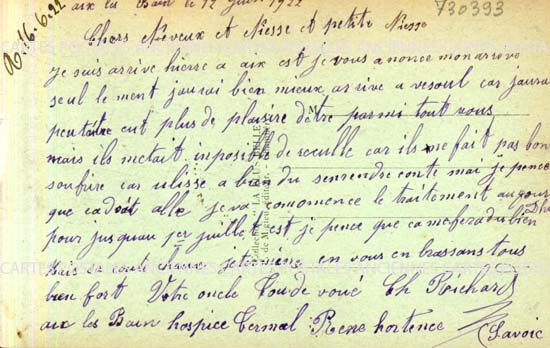 R. 16.6.22
aix les Bain le 12 juin 1922
730393
Chers Neveux et Niesse et petite Niesse
je suis arrivé hierre a aix est je vous anonce monarrové
seul le ment jaurai bien mieux arrivé a vesoul car jaurai
peutaitre eut plus de plaisire dètre parmi tout vous
mais ils metait inposible de reculle car ils me fait pas bon
soufrire car ulisse a bien du senrendre conte mai je pence
que ca doit alle je va comomence le traitement aujour
Dhui
pour jusquau 1er juillet est je pence que ca me fera du bien
il fait chaux je termine en vous en brassans tous
bien fort Votre oncle tou de voué Ch Richard
aix les Bain hospice termal Rene hortence
Savoie